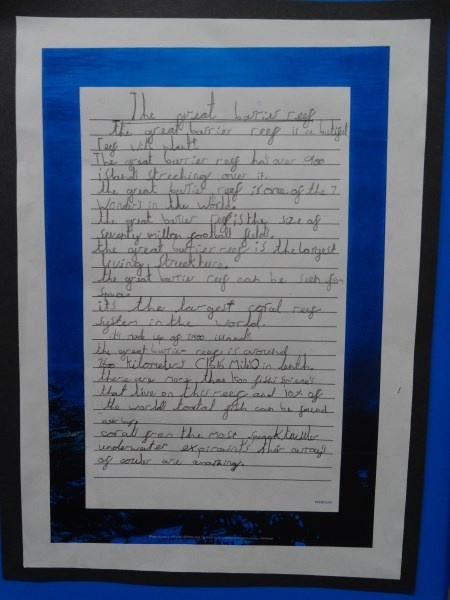 The great barrier reef
the great barrier reef is a butiful
reef with
The great barrier reef has over 900
island streching over it.
the great barrier reef is one of the 7
wonders in the world.
the great barier reef is the size of
seventy millon football fields.
the great barrier reef is the largest
living strukture.
the great barrier reef can be seen from
space.
it's the largest coral reef
system in the world.
it's made up of
the great barrier reef is around
kilometers
there are more than 1500 fish
that live on this reef and 10% of
the world total fish can be found
coral from the most
underwater their arrays
of couler are amazing.